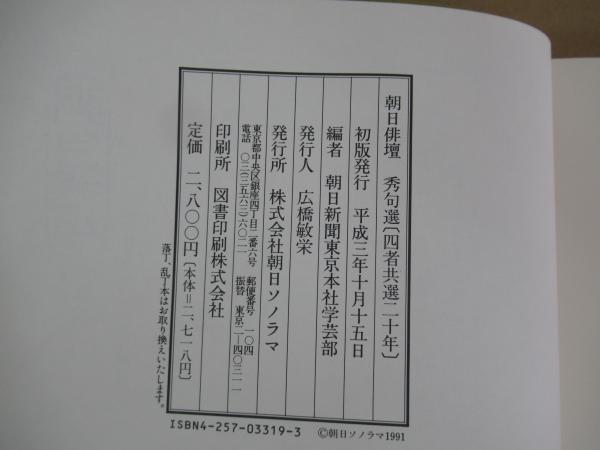 朝日俳壇 秀句選〔四者共選二十年〕
初版発行 平成三年十月十五日
編者 朝日新聞東京本社学芸部
発行人 広橋敏栄
発行所 株式会社朝日ソノラマ
東京都中央区銀座四丁目二番六号 郵便番号 一〇四
電話 〇三(三五六三)六〇二一 振替 東京二―四〇三一一
印刷所 図書印刷株式会社
定価 二、八〇〇円〔本体=二、七一八円〕
落丁、乱丁本はお取り換えいたします。
ISBN4-257-03319-3 ©朝日ソノラマ1991